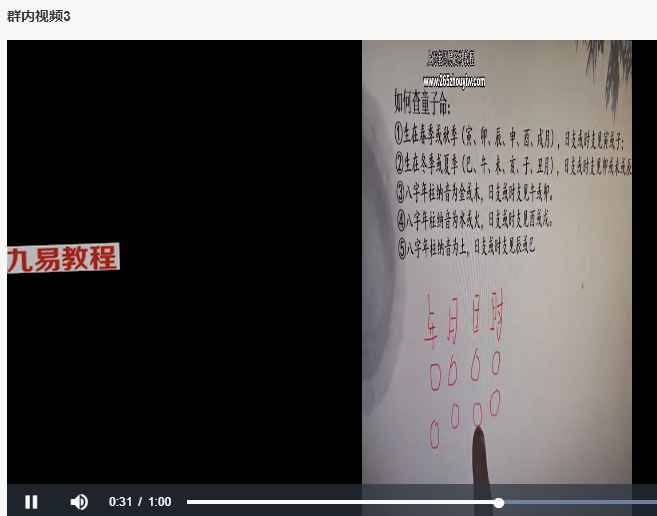 群内视频3
www.265zhouyiw.com
如何查童子命：
①生在春季或秋季（寅、卯、辰、申、酉、戌月），日支或时支见寅或子；
②生在冬季或夏季（巳、午、未、亥、子、丑月），日支或时支见卯或未或辰
③八字年柱纳音为金或木，日支或时支见午或卯。
④八字年柱纳音为水或火，日支或时支见酉或戌。
⑤八字年柱纳音为土，日支或时支见辰或巳
九易教程
年 月 日 时
0:31 / 1:00